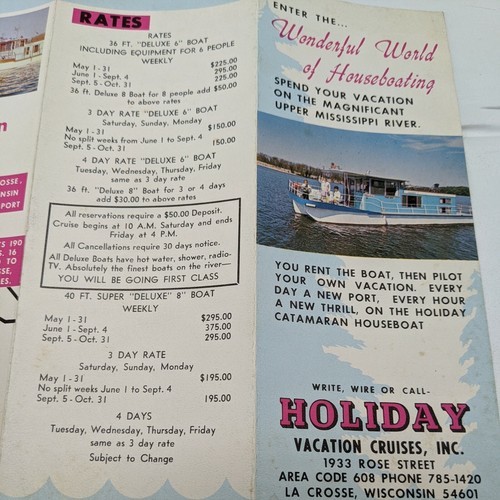 n
OSSE,
NSIN
PORT
'S 190
S. 16
D TO
SSE,
ES.
RATES
RATES
36 FT. "DELUXE 6" BOAT
INCLUDING EQUIPMENT FOR 6 PEOPLE
WEEKLY
May 1 - 31 $225.00
June 1 - Sept. 4 295.00
Sept. 5 - Oct. 31 225.00
36 ft. Deluxe 8 Boat for 8 people add $50.00
to above rates
3 DAY RATE "DELUXE 6" BOAT
Saturday, Sunday, Monday
May 1 - 31 $150.00
No split weeks from June 1 to Sept. 4
Sept. 5 - Oct. 31 150.00
4 DAY RATE "DELUXE 6" BOAT
Tuesday, Wednesday, Thursday, Friday
same as 3 day rate
36 ft. "Deluxe 8" Boat for 3 or 4 days
add $30.00 to above rates
All reservations require a $50.00 Deposit.
Cruise begins at 10 A.M. Saturday and ends
Friday at 4 P.M.
All Cancellations require 30 days notice.
All Deluxe Boats have hot water, shower, radio-
TV. Absolutely the finest boats on the river—
YOU WILL BE GOING FIRST CLASS
40 FT. SUPER "DELUXE" 8" BOAT
WEEKLY
May 1 - 31 $295.00
June 1 - Sept. 4 375.00
Sept. 5 - Oct. 31 295.00
3 DAY RATE
Saturday, Sunday, Monday
May 1 - 31 $195.00
No split weeks June 1 to Sept. 4
Sept. 5 - Oct. 31 195.00
4 DAYS
Tuesday, Wednesday, Thursday, Friday
same as 3 day rate
Subject to Change
ENTER THE...
Wonderful World
of Houseboating
SPEND YOUR VACATION
ON THE MAGNIFICANT
UPPER MISSISSIPPI RIVER.
YOU RENT THE BOAT, THEN PILOT
YOUR OWN VACATION. EVERY
DAY A NEW PORT, EVERY HOUR
A NEW THRILL, ON THE HOLIDAY
CATAMARAN HOUSEBOAT
WRITE, WIRE OR CALL-
HOLIDAY
VACATION CRUISES, INC.
1933 ROSE STREET
AREA CODE 608 PHONE 785-1420
LA CROSSE, WISCONSIN 54601